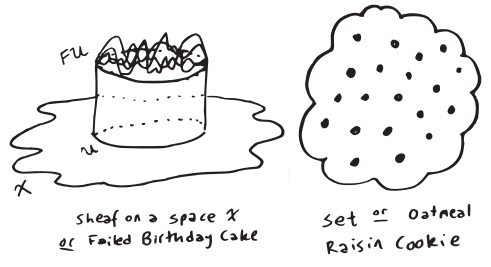 FU
U
X
Sheaf on a space X
or Failed Birthday Cake
Set or Oatmeal
Raisin Cookie